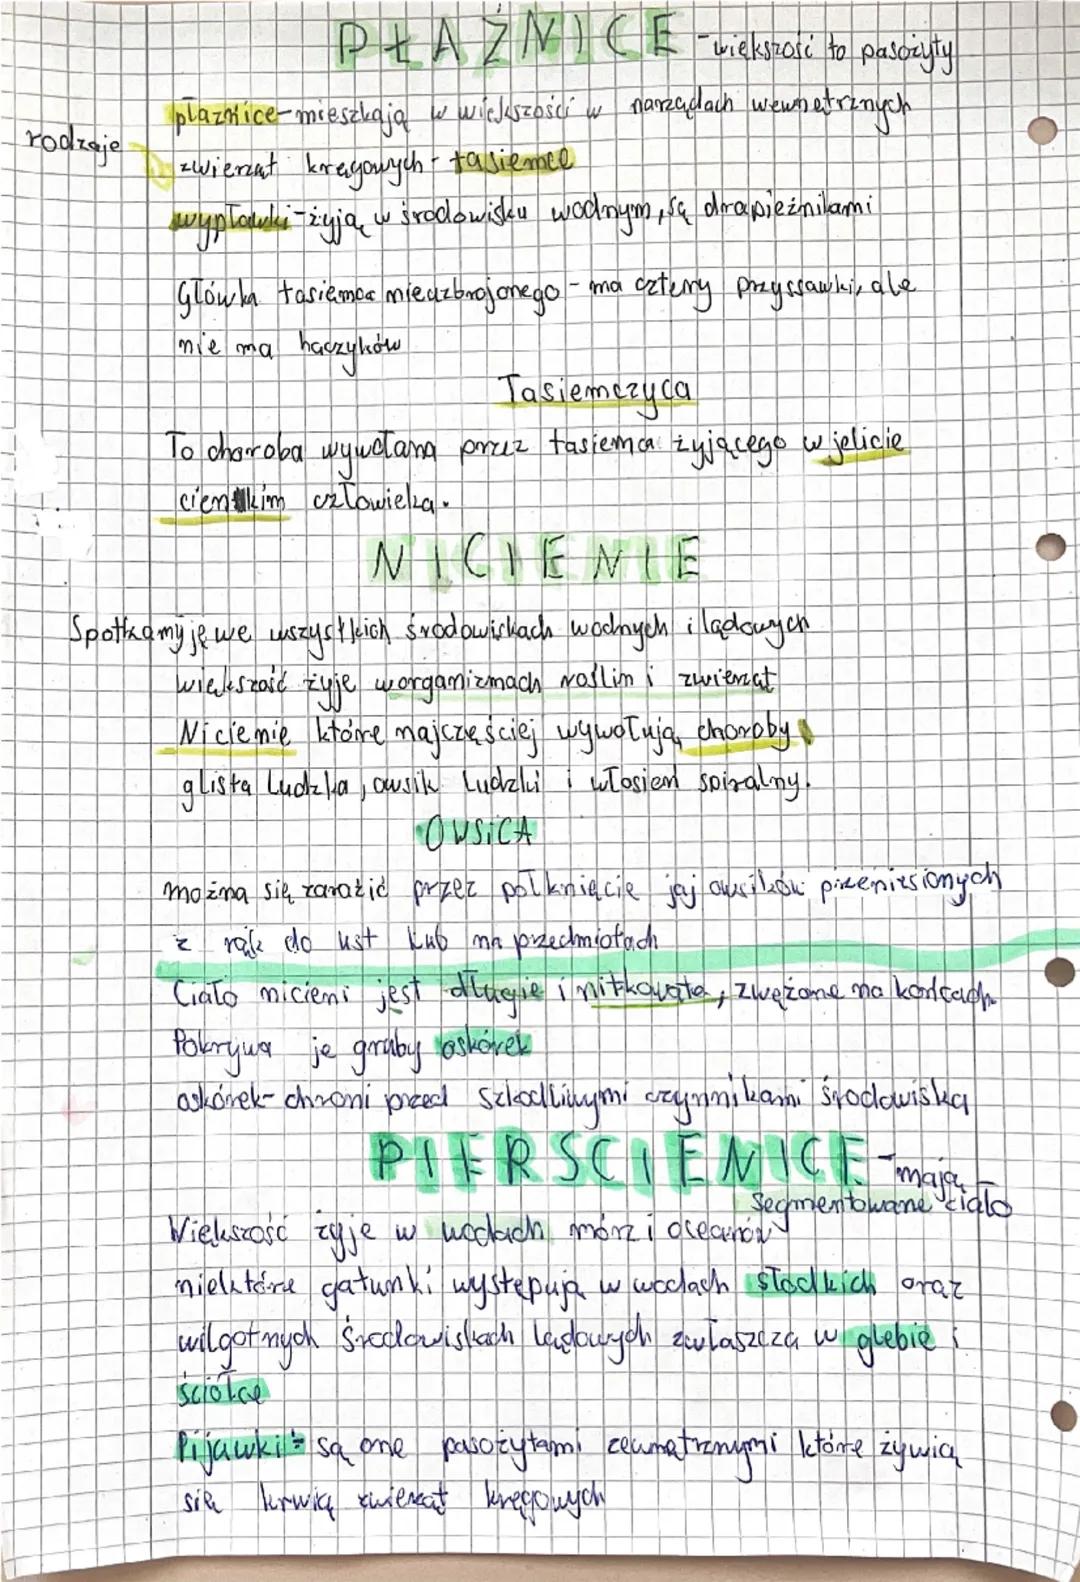 PŁAZIŃCE - większość to pasożyty
płazińce - mieszkają w większości w narządach wewnętrznych
rodzaje
zwierząt kręgowych - tasiemce
wypławki - żyją w środowisku wodnym, są drapieżnikami
Główka tasiemca nieuzbrojonego - ma cztery przyssawki, ale
nie ma haczyków
Tasiemczyca
To choroba wywołana przez tasiemca żyjącego w jelicie
cienkim człowieka.
NICIENIE
Spotkamy je we wszystkich środowiskach wodnych i lądowych
większość żyje w organizmach roślin i zwierząt
Nicienie które najczęściej wywołują choroby
glista ludzka, owsik ludzki i włosień spiralny.
OWSICA
można się zarazić przez połknięcie jaj owsików przeniesionych
z rąk do ust lub na przedmiotach
Ciało nicieni jest długie i nitkowate, zwężone na końcach.
Pokrywa je gruby oskórek
oskórek - chroni przed szkodliwymi czynnikami środowiska
PIERŚCIENICE - mają
segmentowane ciało
Większość żyje w wodach mórz i oceanów
niektóre gatunki występują w wodach słodkich oraz
wilgotnych środowiskach lądowych zwłaszcza w glebie i
ściółce
Pijawki - są one pasożytami zewnętrznymi które żywią
się krwią zwierząt kręgowych